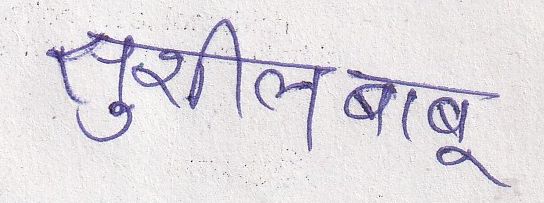 सुशील बाबू